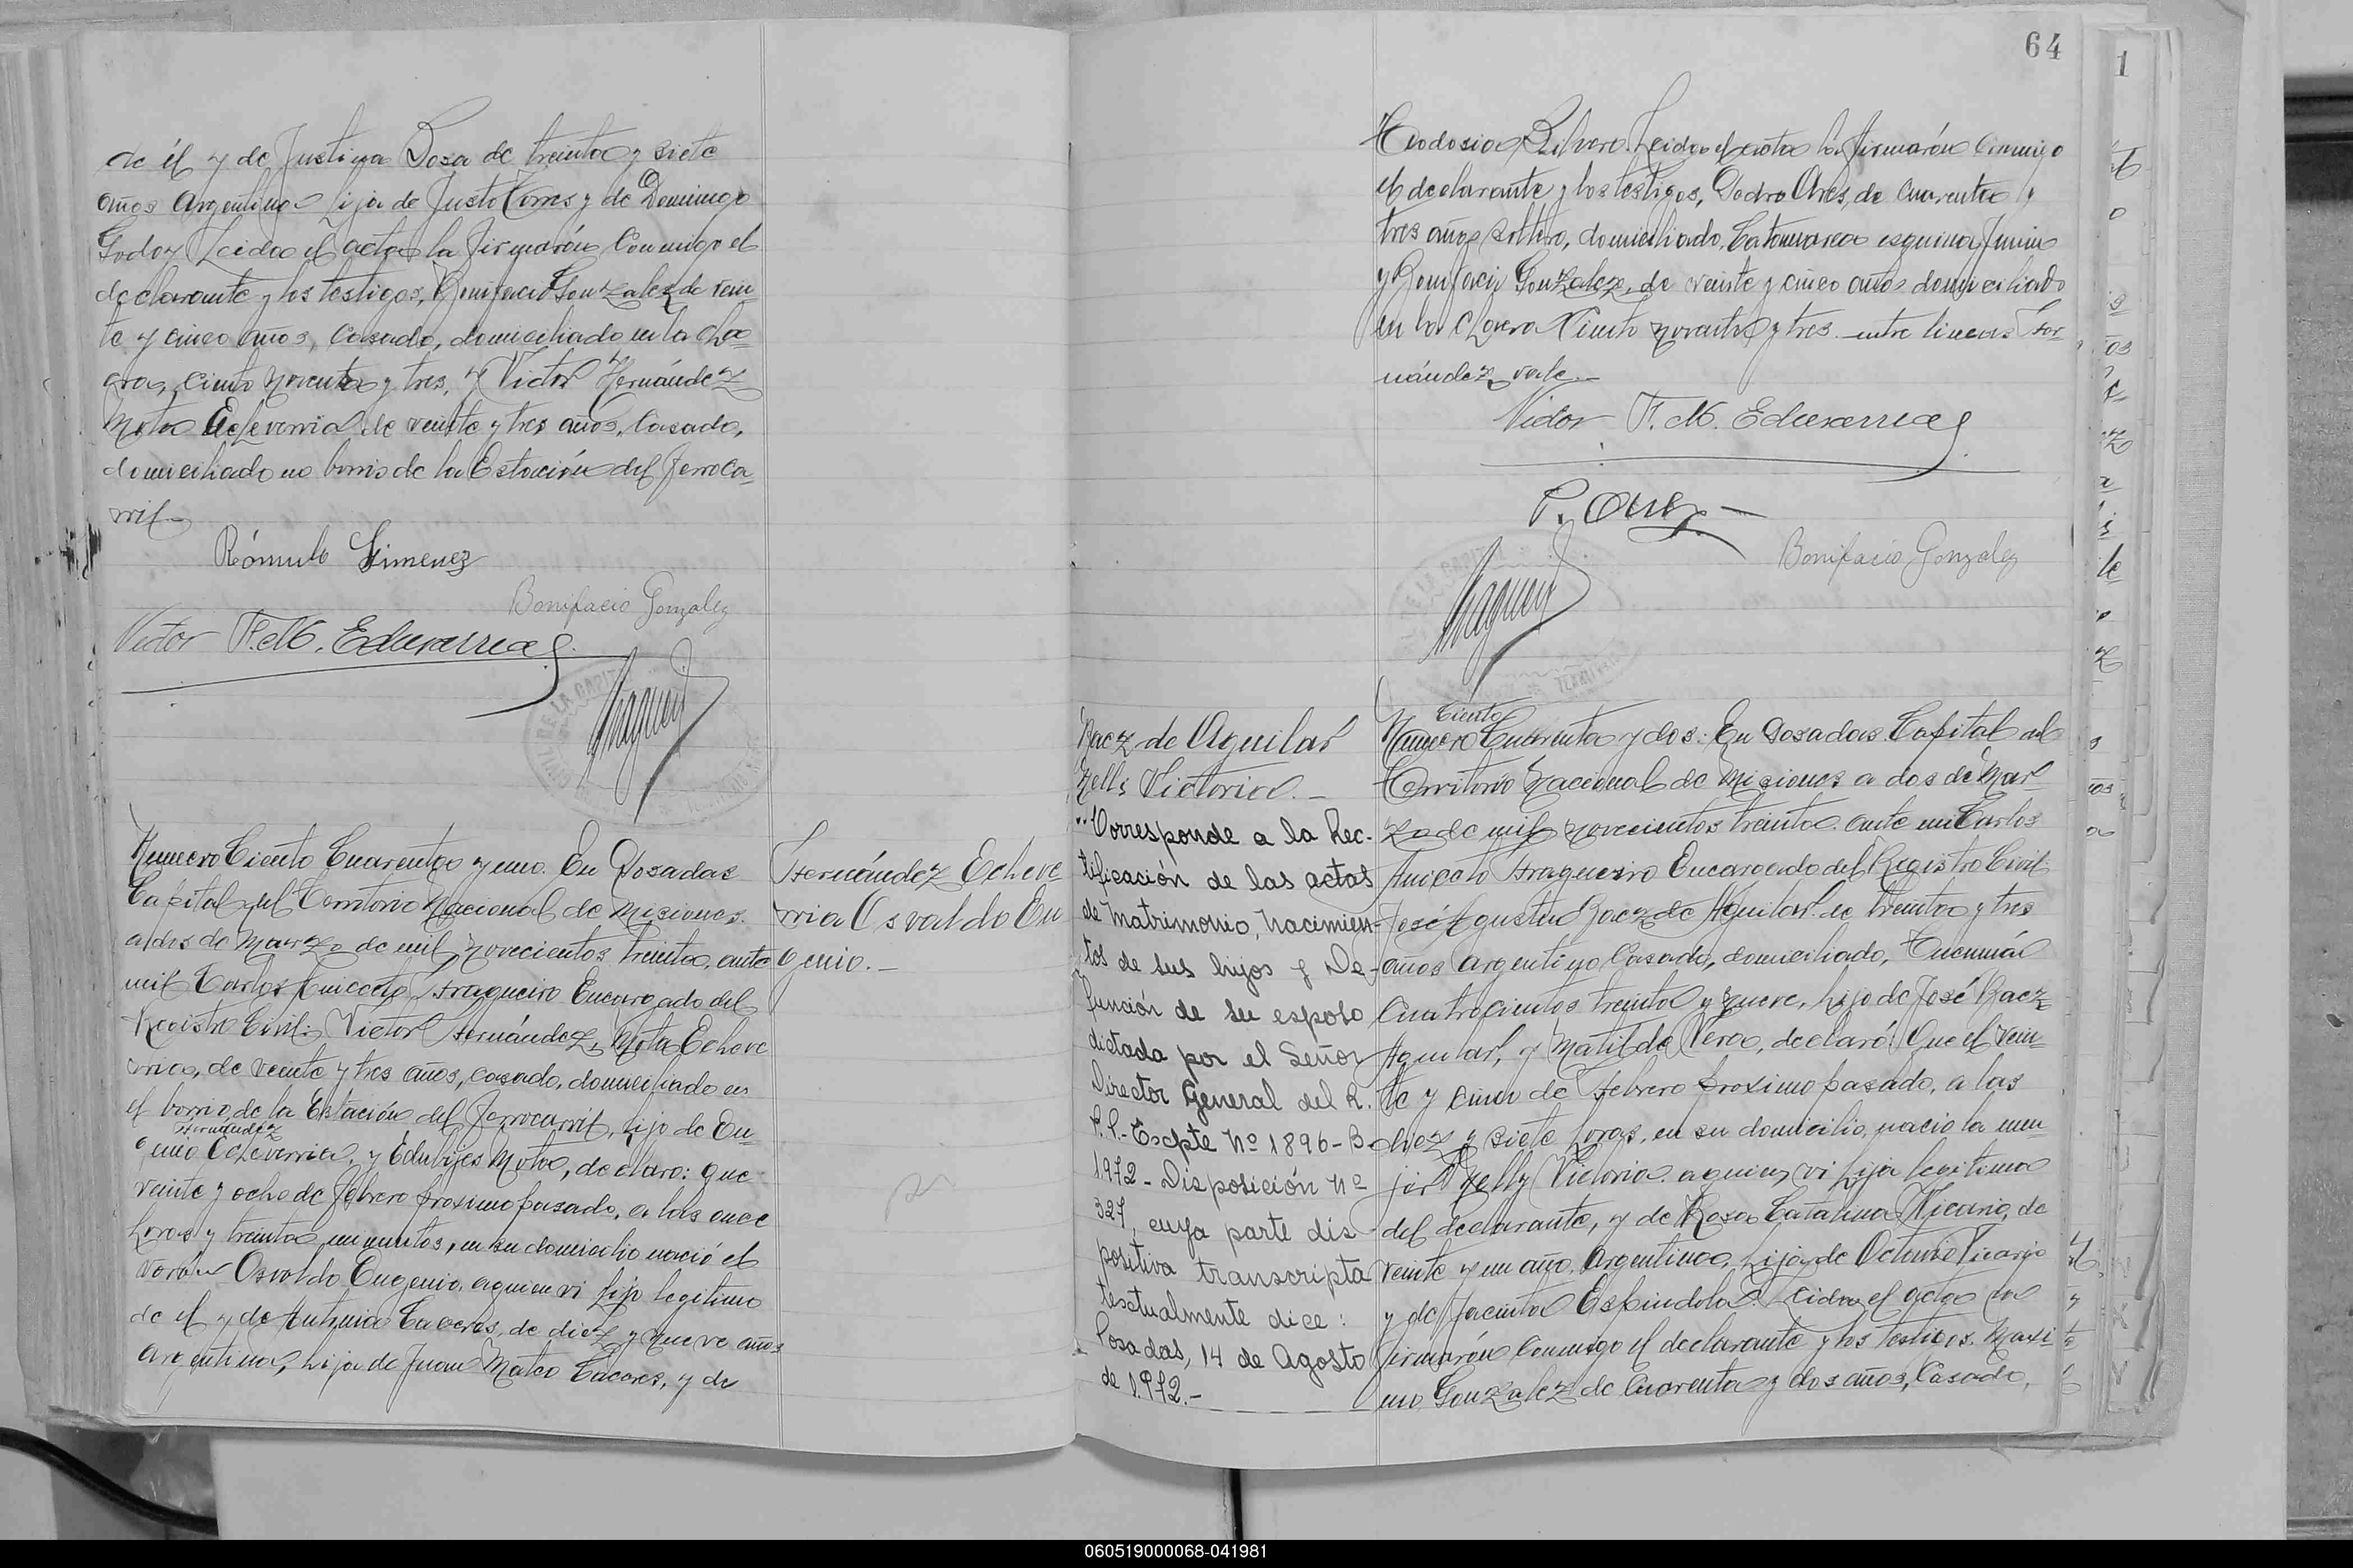 de él y de Justina Sosa de treinta y siete
años Argentina hija de Justo Torres y de Dominga
Godoy Leida el acta la firmarón conmigo el
declarante y los testigos, Bonifacio Gonzalez de vein
te y cinco años, casado, domiciliado en la cha
cra, ciento noventa y tres, y Victor Hernández
Mota Echeverria de veinte y tres años, casado,
domiciliado no barrio de la Estación del Ferroca
rril
Rómulo Gimenez
Bonifacio Gonzalez
Victor H. M. Echeverria
Numero Ciento Cuarenta y uno. En Posadas
Capital del Territorio Nacional de Misiones.
a dos de Marzo de mil novecientos treinta, ante
mi Carlos Aniceto Fragueiro Encargado del
Registro Civil: Victor Hernández, Mota Echeve
rria, de veinte y tres años, casado, domiciliado en
el barrio de la Estación del Ferrocarril, hijo de Eu
Hernández
genio Echeverria, y Eduvijes Mota, declaro: que
veinte y ocho de febrero proximo pasado, a las once
horas y treinta minutos, en su domicilio nació el
varón Osvaldo Eugenio, a quien vi hijo legitimo
de el y de Antonia Caceres, de diez y nueve años
argentina, hija de Juan Mateo Caceres, y de
Hernández Echeve
rria Osvaldo Eu
genio.-
64
1
Teodosia Rivero. Leida el acta la firmarón conmigo
el declarante y los testigos, Pedro Ares, de cuarenta y
tres años soltero, domiciliado, Catamarca esquina Junin
y Bonifacio Gonzalez, de veinte y cinco años domiciliado
en la Chacra Ciento noventa y tres entre lineas Her
nández vale.-
Victor H. M. Echeverria
P. Ares
Bonifacio Gonzalez
Baez de Aguilar
Nelly Victoria.-
"Corresponde a la Rec-
tificación de las actas
de Matrimonio, Nacimien-
tos de sus hijos y De-
función de su esposo
dictada por el Señor
Director General del R.
P.P.- Escpte Nº 1896-B-
1972- Disposición Nº
327, cuya parte dis-
positiva transcripta
textualmente dice:
Posadas, 14 de Agosto
de 1972.-
Ciento
Numero Cuarenta y dos: En Posadas Capital del
Territorio Nacional de Misiones a dos de Mar
zo de mil novecientos treinta ante mi Carlos
Aniceto Fragueiro Encargado del Registro Civil:
José Agustin Baez de Aguilar de treinta y tres
años Argentino Casado, domiciliado, Tucumán
Cuatrocientos treinta y nueve, hijo de José Baez
Aguilar, y Matilde Vera, declaró: Que el vein
te y cinco de Febrero proximo pasado, a las
diez y siete horas, en su domicilio, nacio la mu
jer Nelly Victoria a quien vi hija legitima
del declarante, y de Rosa Catalina Vicario, de
veinte y un año, Argentina, hija de Octavio Vicario
y de Jacinta Espindola. Leida el acta la
firmarón conmigo el declarante y los testigos, Maxi
mo Gonzalez de Cuarenta y dos años, Casado,
060519000068-041981